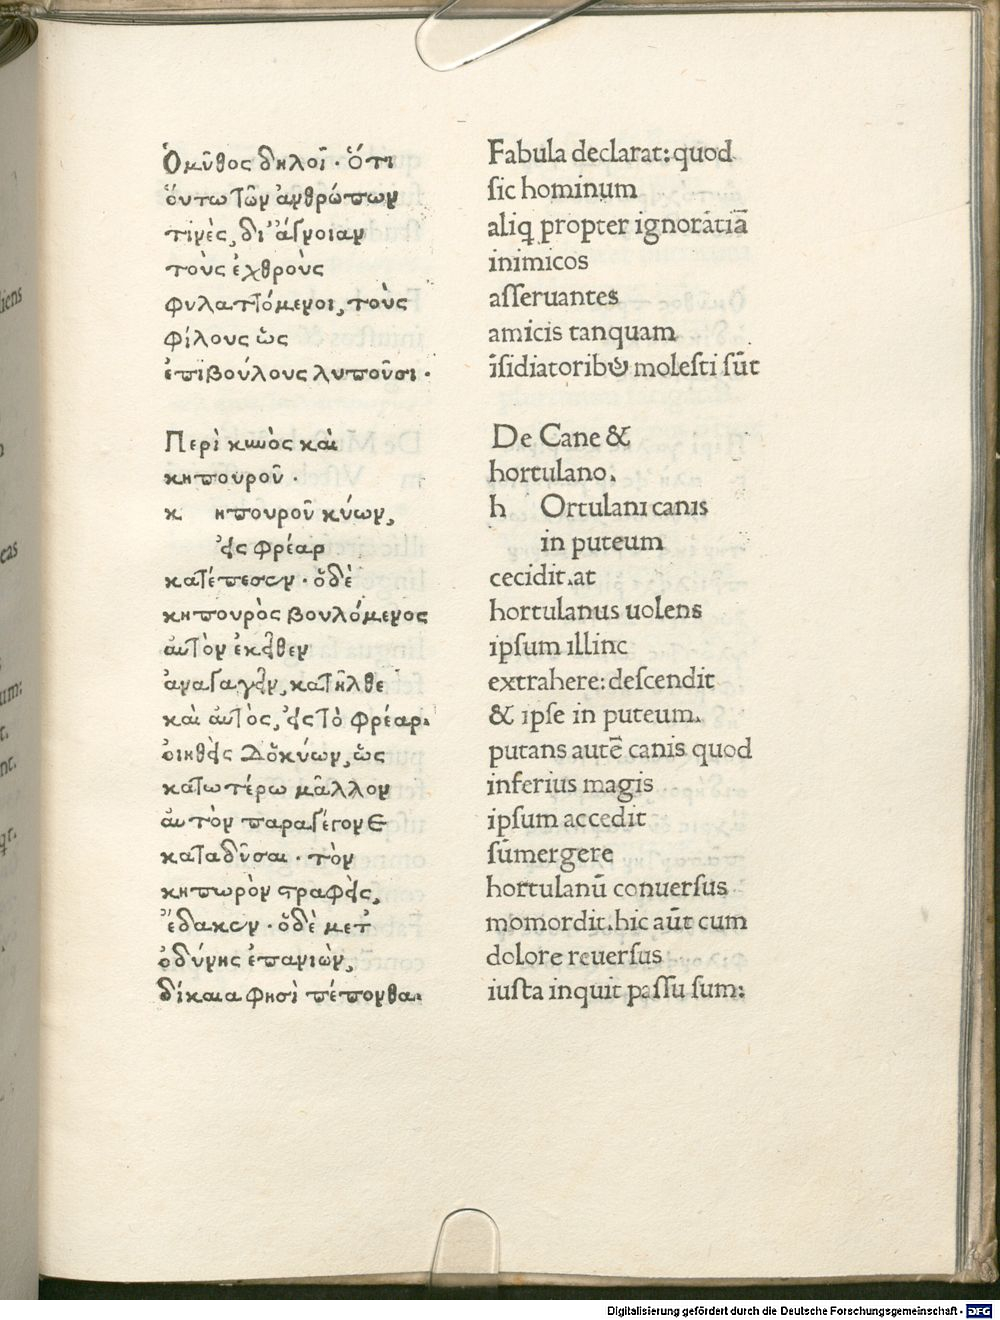 Ὁμῦθος δηλοῖ · ὅτι
ὅυτω τῶν ἀνθρώπων
τινὲς, δι᾽ ἄγνοιαν
τοὺς ἐχθροὺς
φυλαττόμενοι, τοὺς
φίλους ὡς
ἐπιβούλους λυποῦσι ·
Περὶ κυνὸς καὶ
κηπουροῦ ·
κ ηπουροῦ κύων,
ἐις φρέαρ
κατέπεσεν · ὅδὲ
κηπουρὸς βουλόμενος
ἀυτὸν ἐκεῖθεν
ἀναγαγεῖν, κατῆλθε
καὶ ἀυτὸς, ἐις τὸ φρέαρ.
ὀιηθεὶς Δὁκύων, ὡς
κατωτέρω μᾶλλον
ἀυτὸν παραγέγονε
καταδῦσαι · τὸν
κηπωρὸν στραφεὶς,
ἔδακεν · ὅδὲ μετ᾽
ὀδύνης ἐπανιὼν,
δίκαια φησὶ πέπονθα.
Fabula declarat: quod
ſic hominum
aliq̣ propter ignorãtiã
inimicos
aſſeruantes
amicis tanquam
ĩſidiatoribꝰ moleſti sũt
De Cane &
hortulano.
h Ortulani canis
in puteum
cecidit.at
hortulanus uolens
ipſum illinc
extrahere: deſcendit
& ipſe in puteum.
putans autẽ canis quod
inferius magis
ipſum accedit
ſũmergere
hortulanũ conuerſus
momordit.hic aũt cum
dolore reuerſus
iuſta inquit paſſu ſum:
liens
eas
um:
t.
nt.
qt.
Digitalisierung gefördert durch die Deutsche Forschungsgemeinschaft - DFG